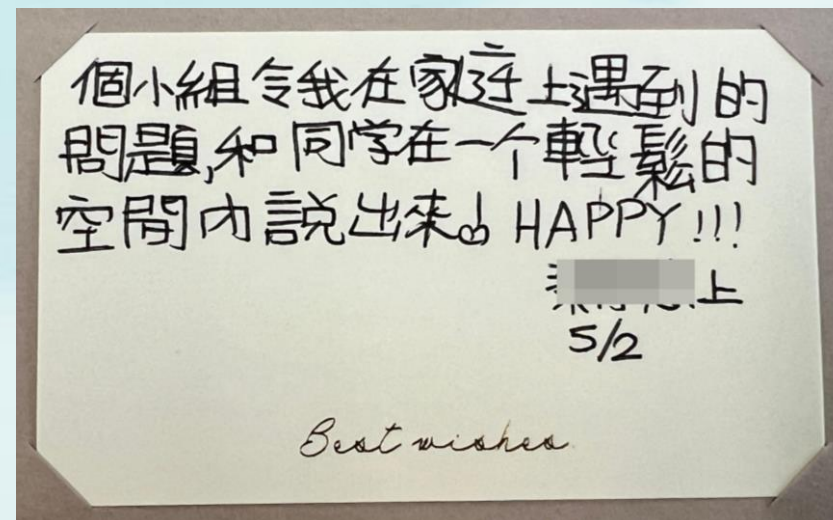 個小組令我在家庭上遇到的
問題,和同学在一个輕鬆的
空間内說出來! HAPPY!!!
上
5/2
Best wishes